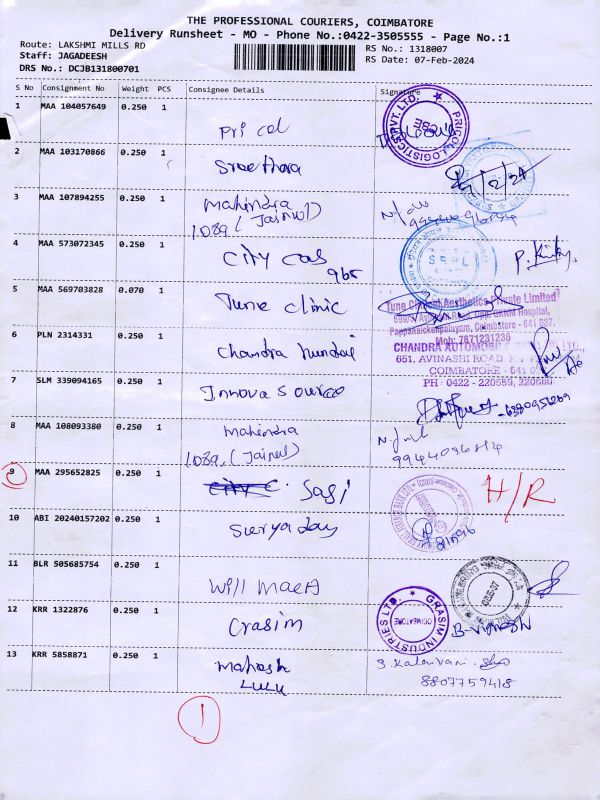 THE PROFESSIONAL COURIERS, COIMBATORE
Delivery Runsheet - MO - Phone No.:0422-3505555 - Page No.:1
Route: LAKSHMI MILLS RD
RS No.: 1318007
Staff: JAGADEESH
RS Date: 07-Feb-2024
DRS No.: DCJB131800701
S No Consignment No Weight PCS Consignee Details Signature
1 MAA 104057649 0.250 1
Pricol
PRICOL LOGISTICS PVT. LTD. CBE
2 MAA 103170866 0.250 1
Sreethara
/2/24
3 MAA 107894255 0.250 1
Mahindra
1089 (Jainul)
4 MAA 573072345 0.250 1
city cas
965
SRPL
5 MAA 569703828 0.070 1
Tune clinic
Tune Clinical Aesthetics Private Limited
Hospital,
Pappanaickenpalayam, Coimbatore - 641 037.
Mob: 7871231236
6 PLN 2314331 0.250 1
Chandra hundai
CHANDRA AUTOMOBILE LTD.,
651, AVINASHI ROAD,
COIMBATORE - 641
PH : 0422 - 220659, 220660
7 SLM 339094165 0.250 1
Innova source
6380956269
8 MAA 108093380 0.250 1
Mahindra
1089, (Jainul)
9944096814
9 MAA 295652825 0.250 1
city c. Sagi
H/R
10 ABI 20240157202 0.250 1
Suryaday
11 BLR 505685754 0.250 1
will
12 KRR 1322876 0.250 1
Crasim
GRASIM INDUSTRIES LTD COIMBATORE
13 KRR 5858871 0.250 1
Mahesh
LULU
S. Kalaivani
8807759418
1